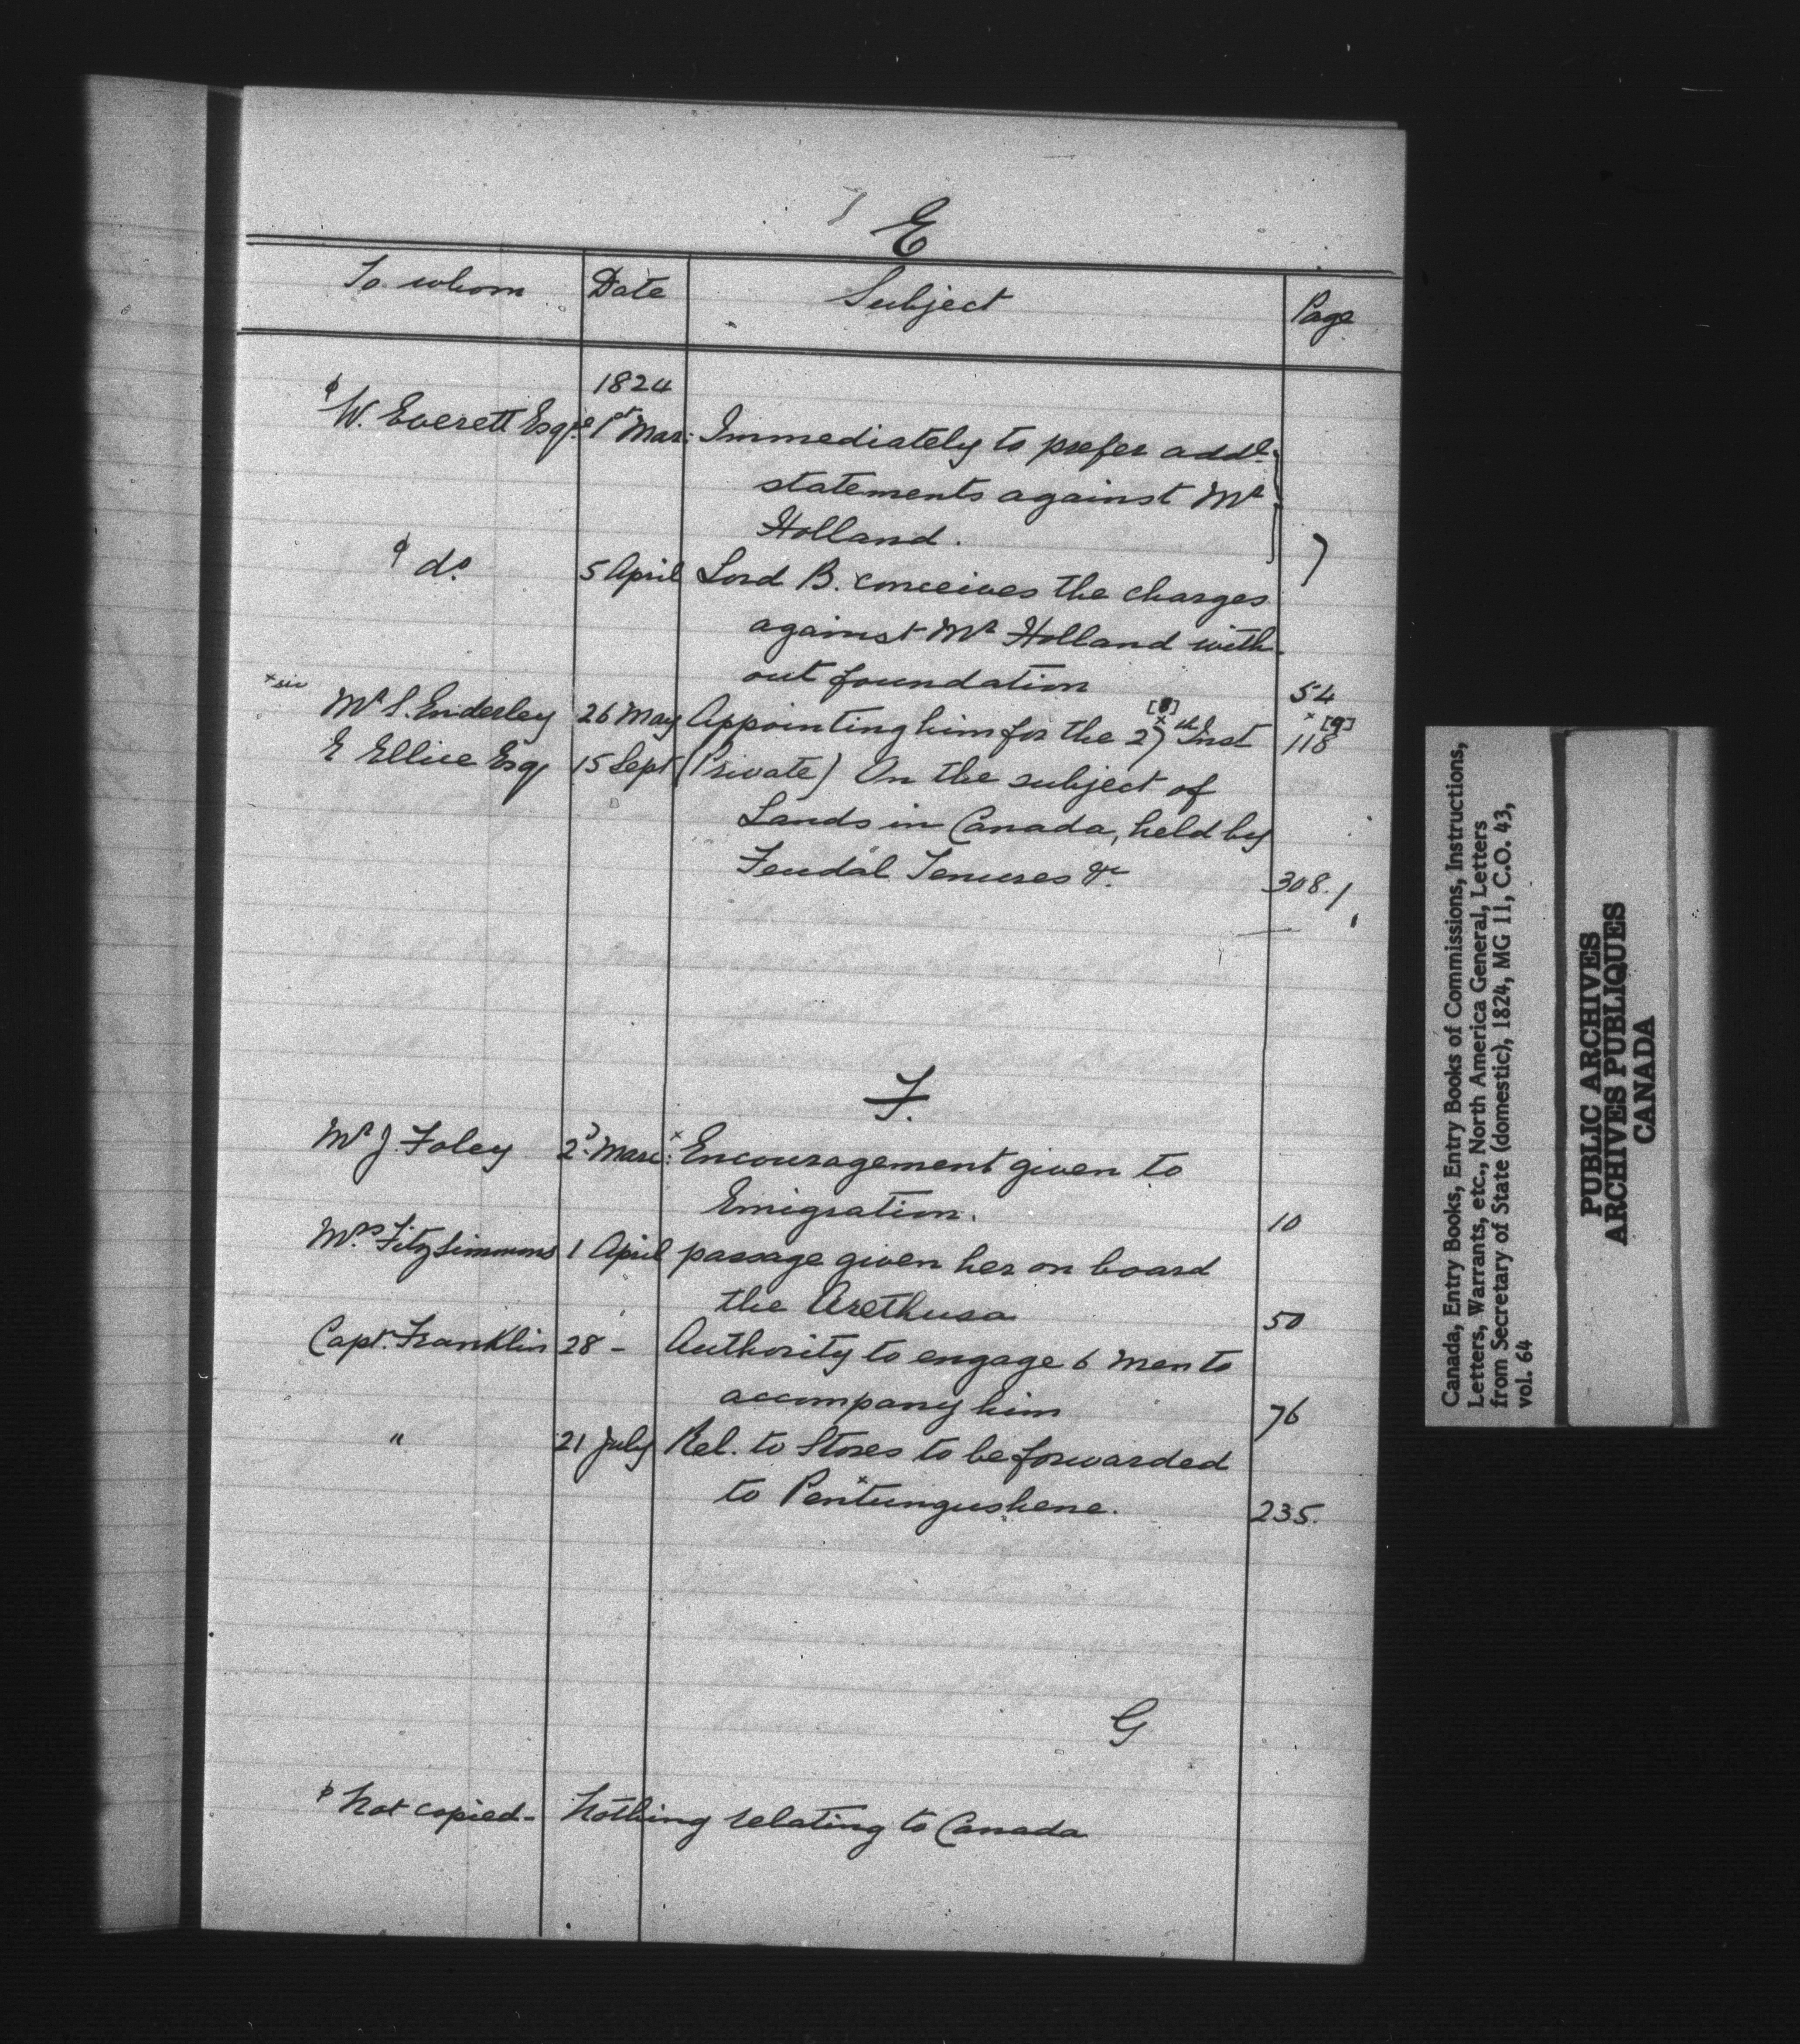 E
To whom Date Subject Page
1824
ɸ W. Everett Esqre 1st Mar: Immediately to prefer addl.
statements against Mr
Holland. 7
ɸ do. 5 April Lord B. conceives the charges
against Mr Holland with-
out foundation 54
x sic [8] x [9]
Mr S. Enderley 26 May Appointing him for the 27th Inst 118
E Ellice Esq, 15 Sept (Private) On the subject of
Lands in Canada, held by
Feudal Tenures &c. 308.
F.
Mr J. Foley 2d. Marc: x Encouragement given to
Emigration. 10
Mrs. Fitzsimmons 1 April passage given her on board
the Arethusa 50
Capt. Franklin 28 - Authority to engage 6 Men to
accompany him 76
" 21 July Rel. to Stores to be forwarded
to Pentungushene. 235.
G
ɸ Not copied - Nothing relating to Canada
Canada, Entry Books, Entry Books of Commissions, Instructions,
Letters, Warrants, etc., North America General, Letters
from Secretary of State (domestic), 1824, MG 11, C.O. 43,
vol. 64
PUBLIC ARCHIVES
ARCHIVES PUBLIQUES
CANADA